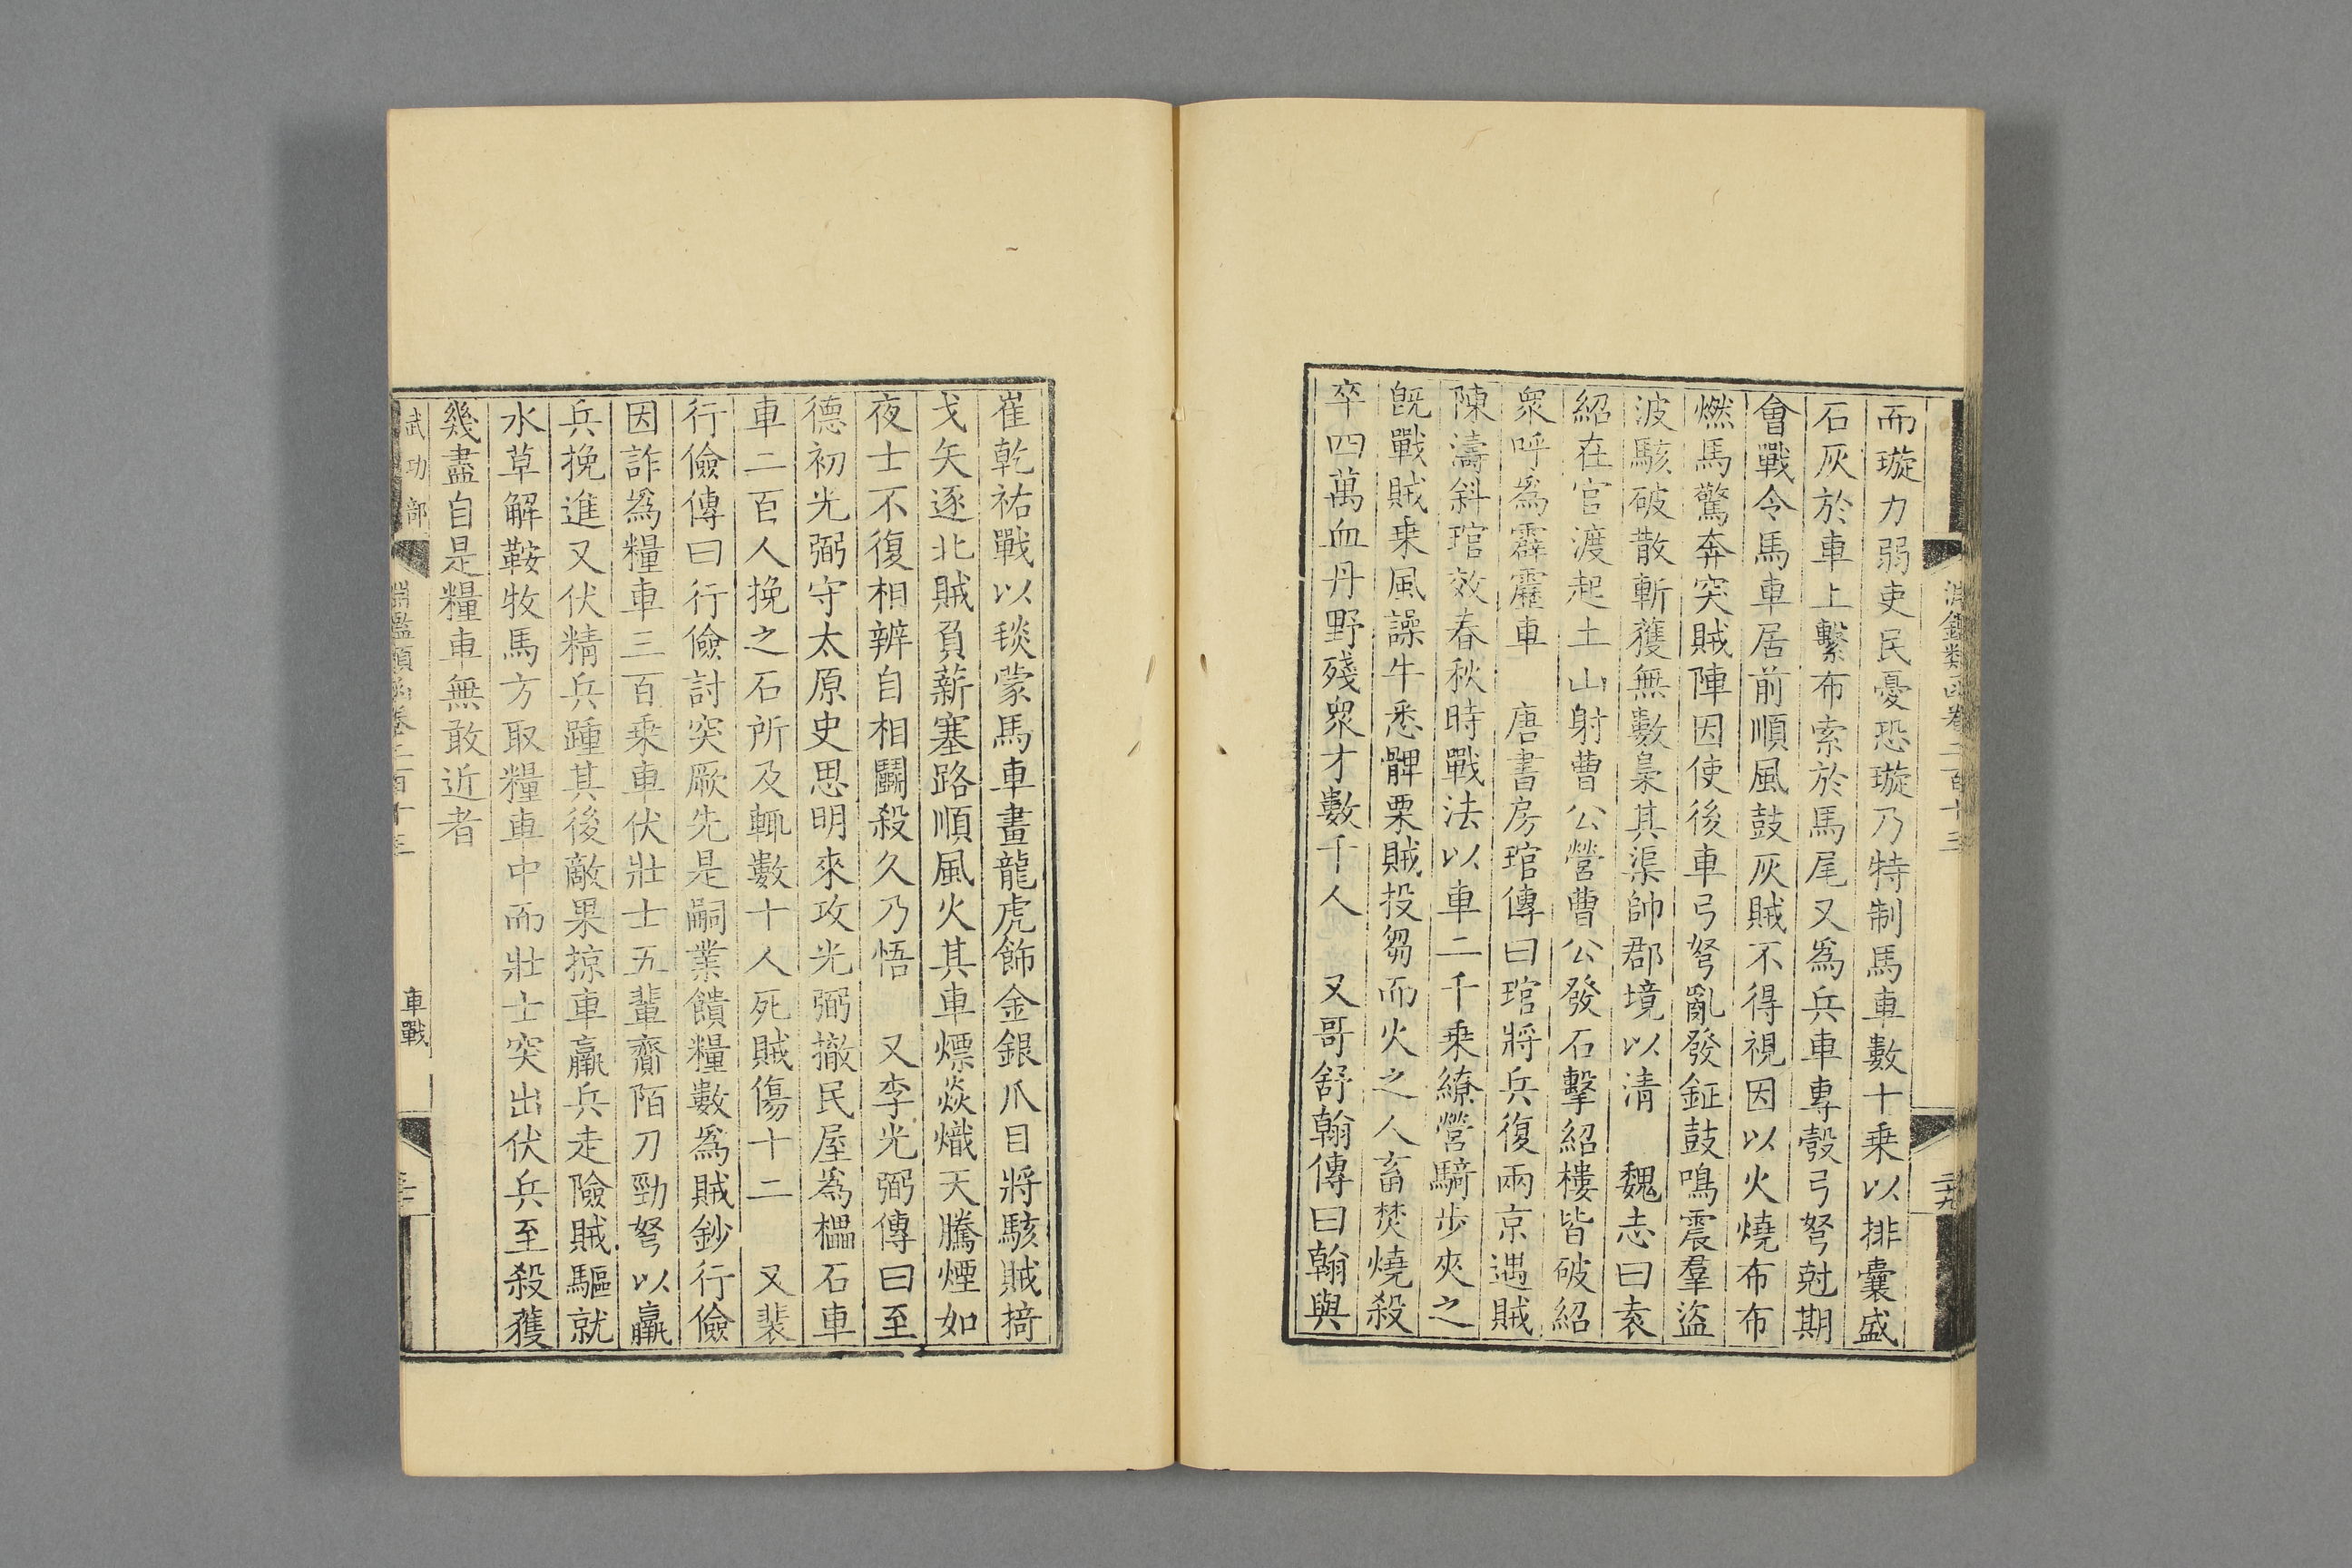 而璇力弱吏民憂恐璇乃特制馬車數十乗以排囊盛
石灰於車上繫布索於馬尾又爲兵車專彀弓弩尅期
會戰令馬車居前順風鼓灰賊不得視因以火燒布布
燃馬驚奔突賊陣因使後車弓弩亂發鉦鼓鳴震羣盜
波駭破散斬獲無數梟其渠帥郡境以清　魏志曰袁
紹在官渡起土山射曹公營曹公發石擊紹樓皆破紹
衆呼爲霹靂車　唐書房琯傳曰琯將兵復兩京遇賊
陳濤斜琯效春秋時戰法以車二千乗繚營騎步夾之
旣戰賊乗風譟牛悉髀栗賊投芻而火之人畜焚燒殺
卒四萬血丹野殘衆才數千人　又哥舒翰傳曰翰與
崔乾祐戰以毯蒙馬車畫龍虎飾金銀爪目將駭賊掎
戈矢逐北賊負薪塞路順風火其車熛焱熾天騰煙如
夜士不復相辨自相鬭殺久乃悟　又李光弼傳曰至
德初光弼守太原史思明來攻光弼撤民屋爲櫑石車
車二百人挽之石所及輒數十人死賊傷十二　又裴
行儉傳曰行儉討突厥先是嗣業饋糧數爲賊鈔行儉
因詐爲糧車三百乗車伏壯士五輩齎陌刀勁弩以羸
兵挽進又伏精兵踵其後敵果掠車羸兵走險賊驅就
水草解鞍牧馬方取糧車中而壯士突出伏兵至殺獲
幾盡自是糧車無敢近者
武功部
淵鑑類函卷二百十三
車戰